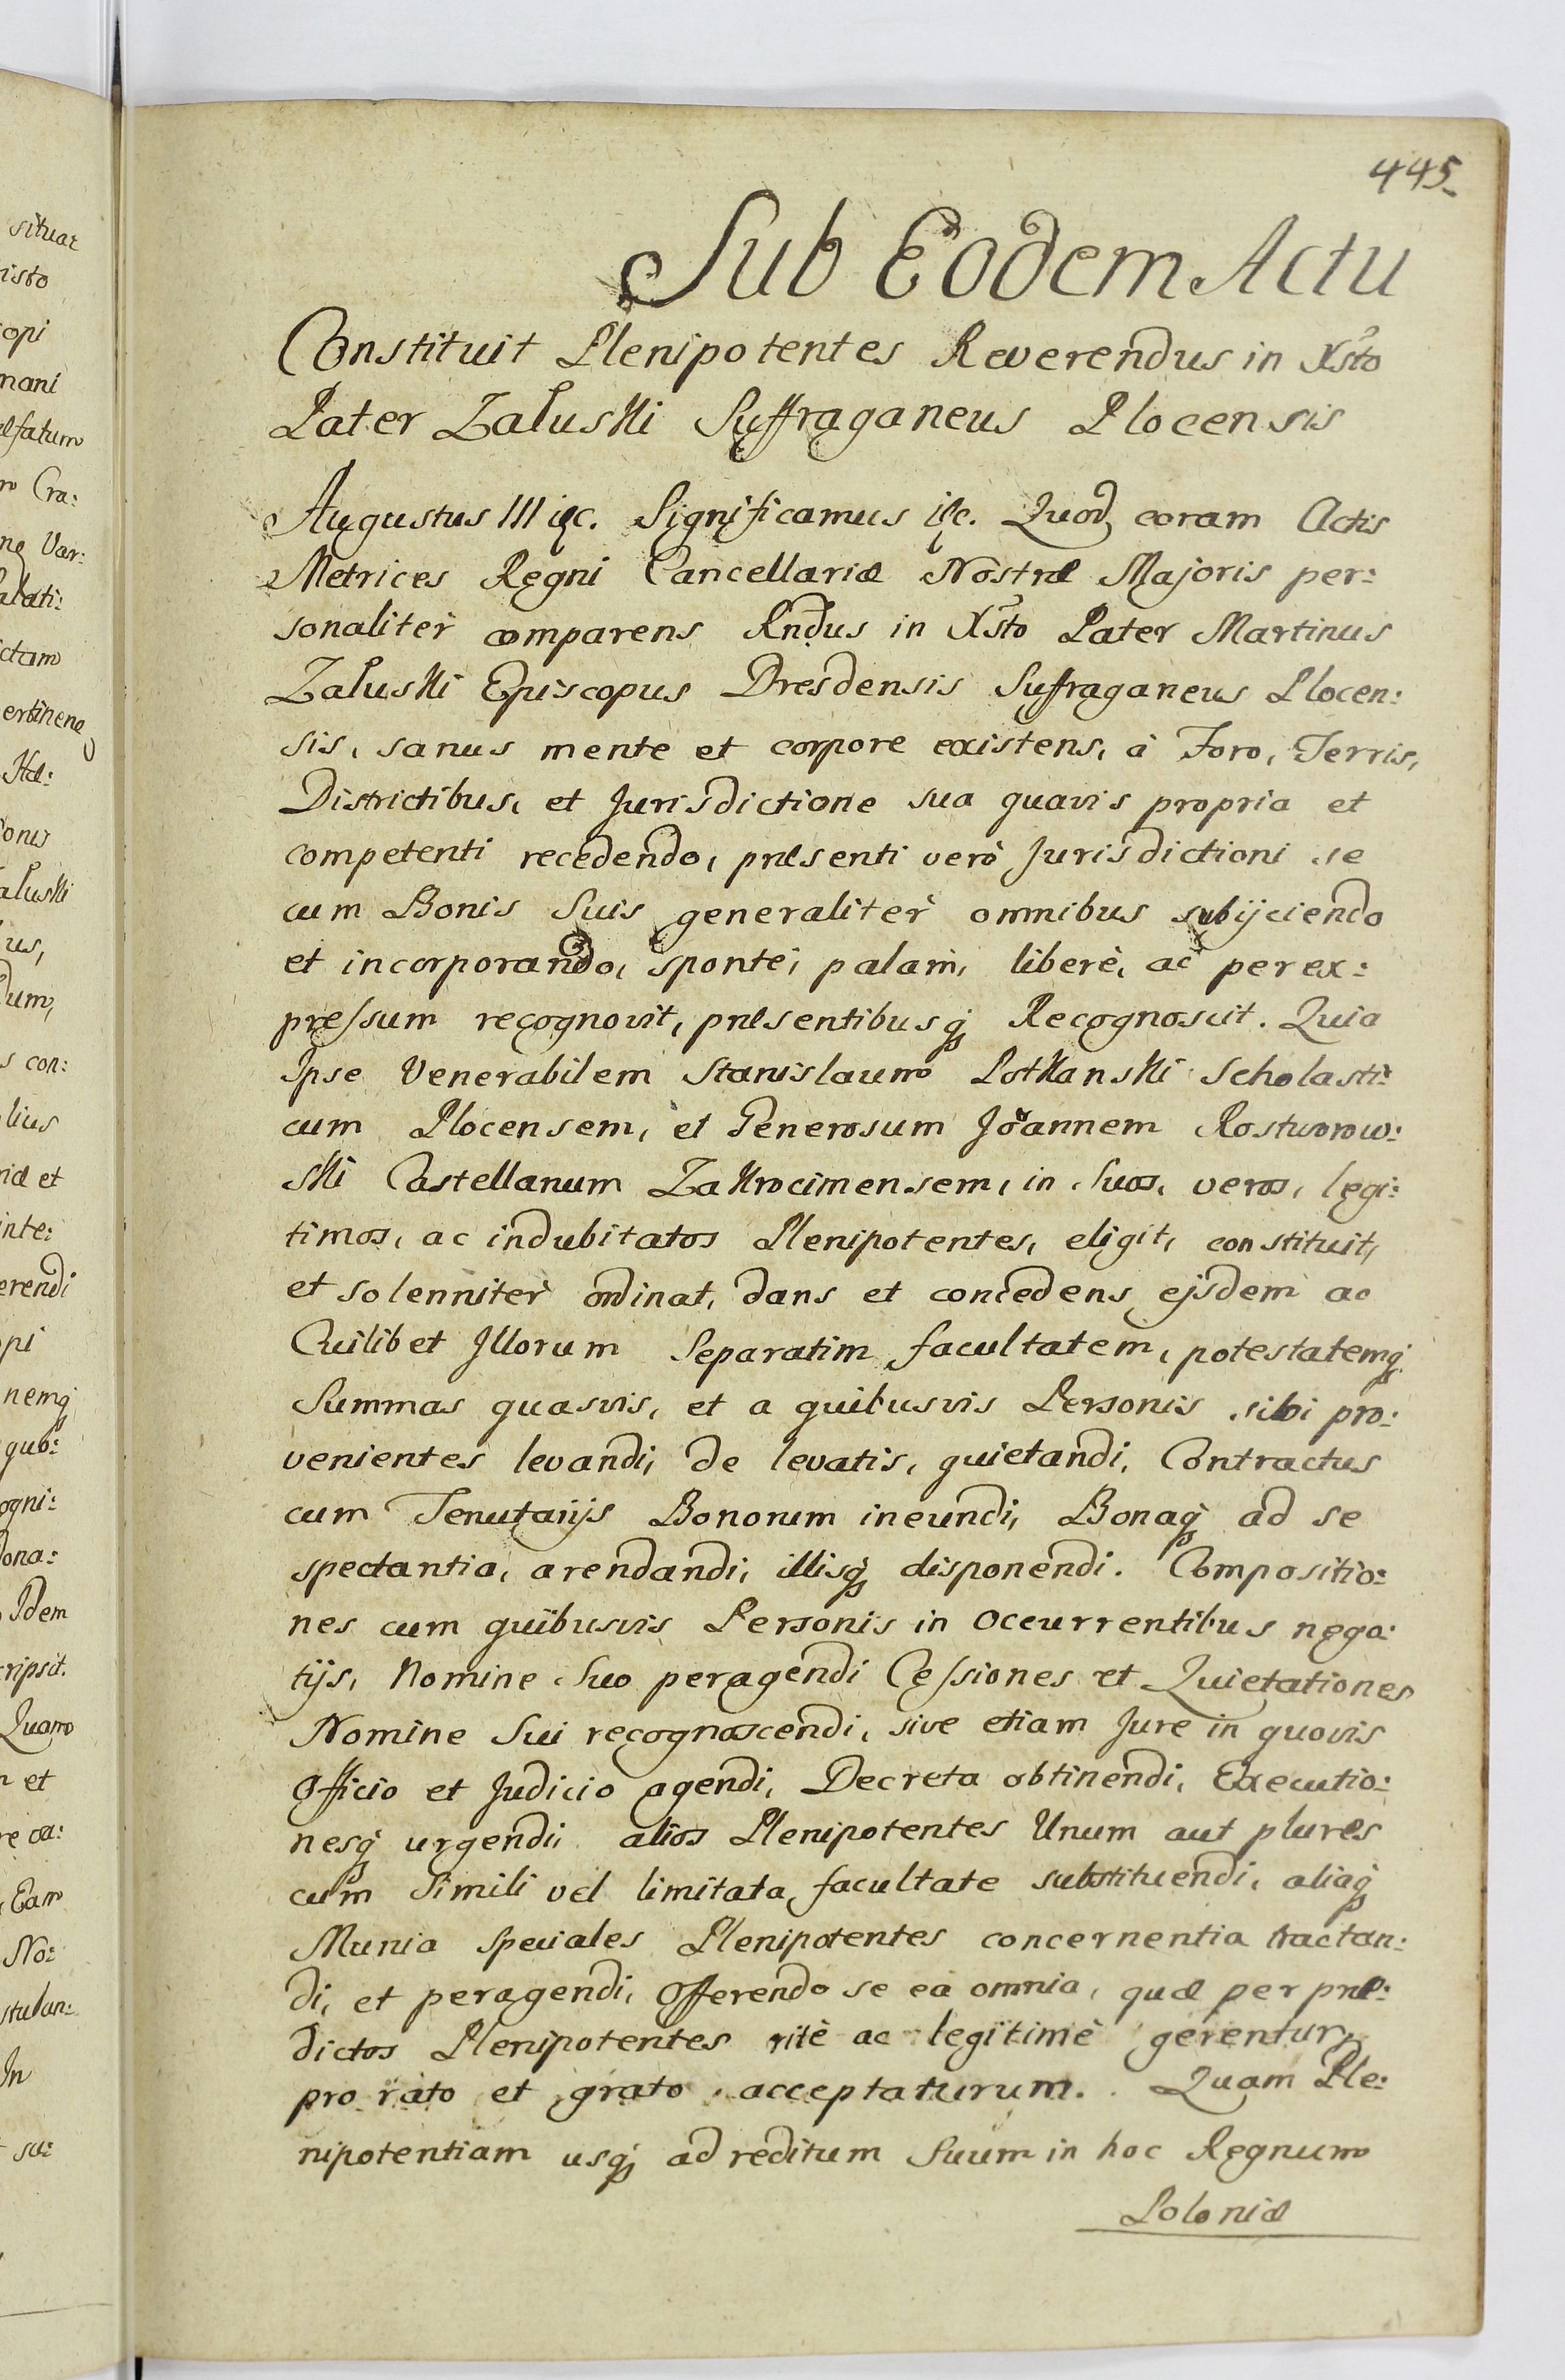 445
Sub Eodem Actu
Constituit Plenipotentes Reverendus in Xsto
Pater Załuski Suffraganeus Plocensis
Augustus III etc. Significamus etc. Quod coram Actis
Metrices Regni Cancellariæ Nostræ Majoris per:
sonaliter comparens Rndus in Xsto Pater Martinus
Załuski Episcopus Dresdensis Suffraganeus Plocen:
sis, sanus mente et corpore existens, à Foro, Terris,
Districtibus, et Jurisdictione sua quavis propria et
competenti recedendo, præsenti verò Jurisdictioni se
cum Bonis Suis generalitèr omnibus subijciendo
et incorporando, spontè, palàm, liberè, ac per ex:
pressum recognovit, præsentibusq Recognoscit. Quia
Ipse Venerabilem Stanislaum Potkanski Scholasti:
cum Plocensem, et Generosum Joannem Rostworow:
ski Castellanum Zakrocimensem, in Suos, veros, legi:
timos, ac indubitatos Plenipotentes, eligit, constituit,
et solennitèr ordinat, dans et concedens ejsdem ac
Cuilibet Illorum Separatim facultatem, potestatemq
Summas quasvis, et a quibusvis Personis sibi pro:
venientes levandi, de levatis, quietandi, Contractus
cum Tenutarijs Bonorum ineundi, Bonaq ad se
spectantia, arendandi, illisq disponendi. Compositio:
nes cum quibusvis Personis in occurrentibus nego:
tijs, Nomine Suo peragendi Cessiones et Quietationes
Nomine Sui recognoscendi, sive etiam Jure in quovis
Officio et Judicio agendi, Decreta obtinendi, Executio:
nesq urgendi, alios Plenipotentes Unum aut plures
cum Simili vel limitata facultate substituendi, aliaq
Munia speciales Plenipotentes concernentia tractan:
di, et peragendi, Offerendo se ea omnia, quæ per præ:
dictos Plenipotentes ritè ac legitimè gerentur,
pro rato et grato acceptaturum. Quam Ple:
nipotentiam usq ad reditum Suum in hoc Regnum
Poloniæ